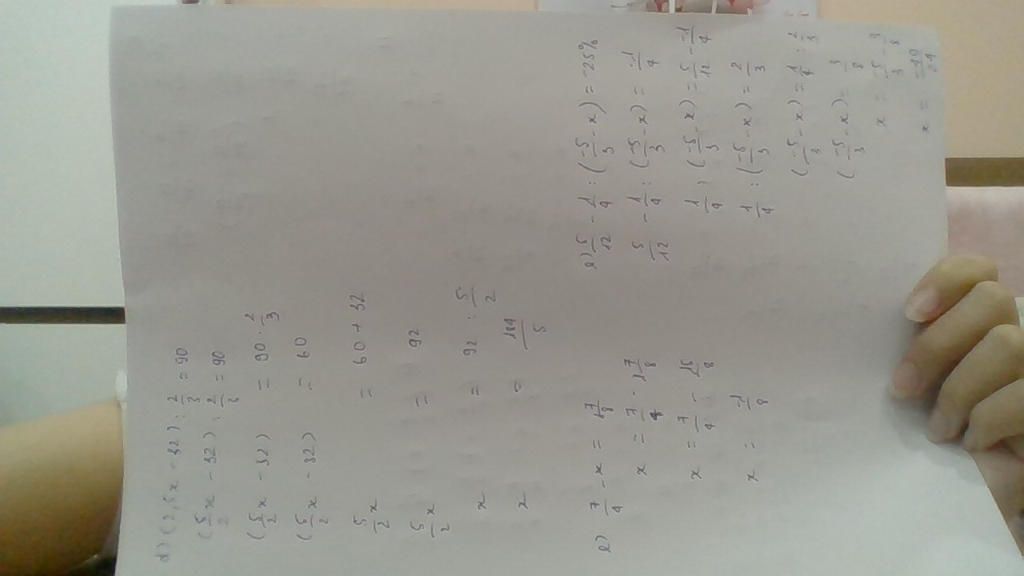 d) (2,5x - 32) : 2/3 = 90
(5/2 x - 32) : 2/3 = 90
(5/2 x - 32) = 90 . 2/3
(5/2 x - 32) = 60
5/2 x = 60 + 32
5/2 x = 92
x = 92 : 5/2
x = 184/5
e) 7/4 - x = 1 7/8
x = 7/4 - 1 7/8
x = 7/4 - 15/8
x = -1/8
l) 5/12 - 1/4 : (-5/3 - x) = -25%
5/12 - 1/4 : (-5/3 - x) = -1/4
1/4 : (-5/3 - x) = 5/12 - -1/4
1/4 : (-5/3 - x) = 2/3
(-5/3 - x) = 1/4 : 2/3
(-5/3 - x) = 3/8
x = -5/3 - 3/8